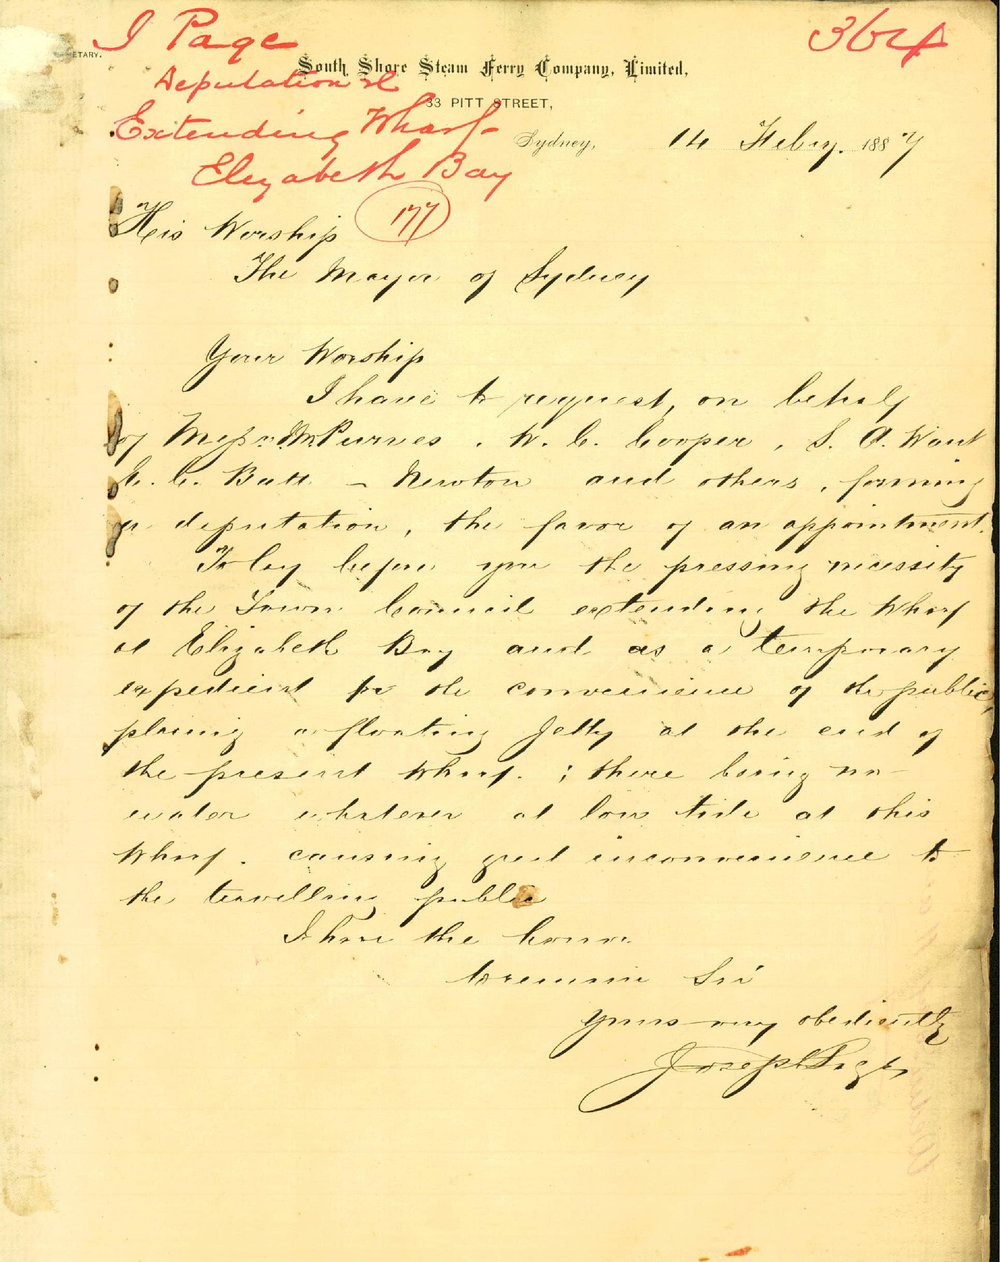 ETARY.
J Page
Deputation re
Extending Wharf
Elizabeth Bay
364
South Shore Steam Ferry Company, Limited,
33 PITT STREET,
Sydney, 14 Feby. 1887
177
His Worship
The Mayor of Sydney
Your Worship
I have to request, on behalf
of Messrs Purves, W. C. Cooper, S. A. Want
C. Batt - Newton and others, forming
a deputation, the favor of an appointment.
To lay before you the pressing necessity
of the Town Council extending the Wharf
at Elizabeth Bay and as a temporary
expedient for the convenience of the public,
placing a floating Jetty at the end of
the present Wharf. ; there being no
water whatever at low tide at this
Wharf. causing great inconvenience to
the travelling public
I have the honor
to remain Sir
Yours very obediently
Joseph Page